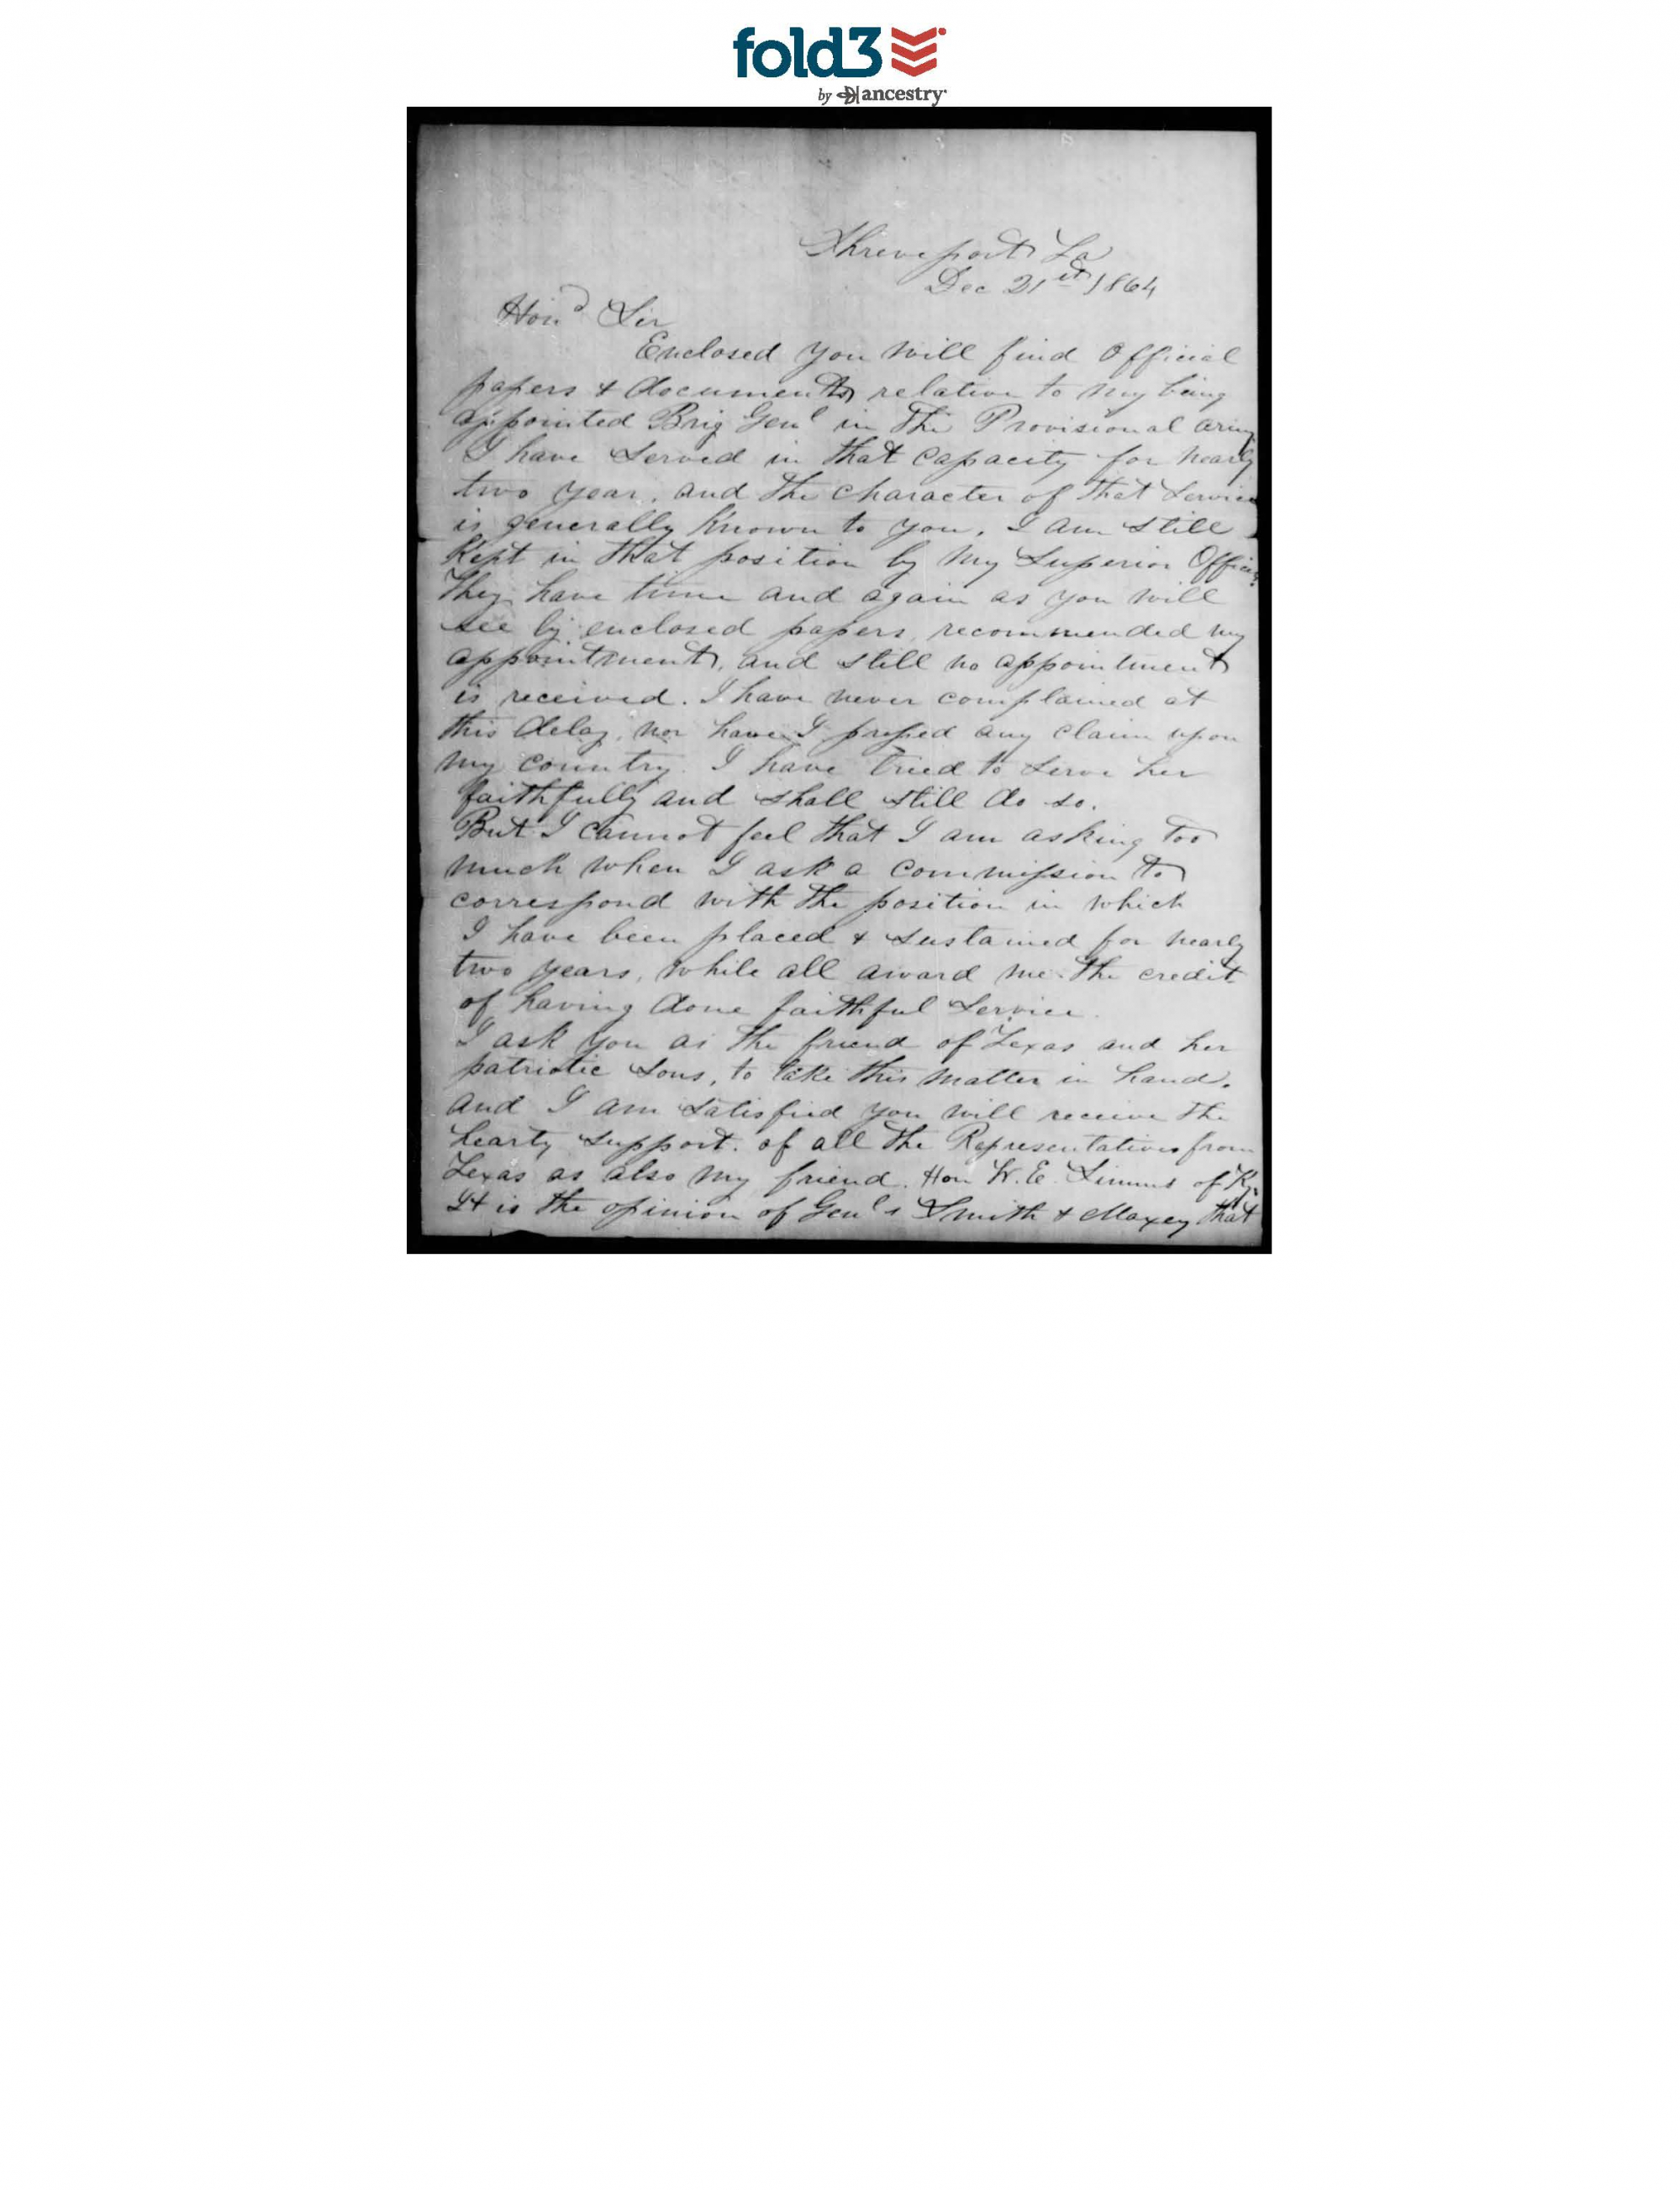 fold3
by ancestry
Shreveport La
Dec 21st 1864
Hond Sir
Enclosed you will find Official
papers & documents relative to my being
appointed Brig Genl in the Provisional army
I have served in that capacity for nearly
two year, and the character of that service
is generally known to you. I am still
Kept in that position by my Superior Officers.
They have time and again as you will
see by enclosed papers, recommended my
appointment, and still no appointment
is received. I have never complained at
this delay, nor have I pressed any claim upon
my country. I have tried to serve her
faithfully and shall still do so.
But I cannot feel that I am asking too
much when I ask a commission to
correspond with the position in which
I have been placed & sustained for nearly
two years, while all award me the credit
of having done faithful service.
I ask you as the friend of Texas and her
patriotic sons, to take this matter in hand.
and I am satisfied you will receive the
hearty support. of all the Representatives from
Texas as also my friend. Hon W. E. Simms of Ky.
It is the opinion of Genl's Smith & Maxey that